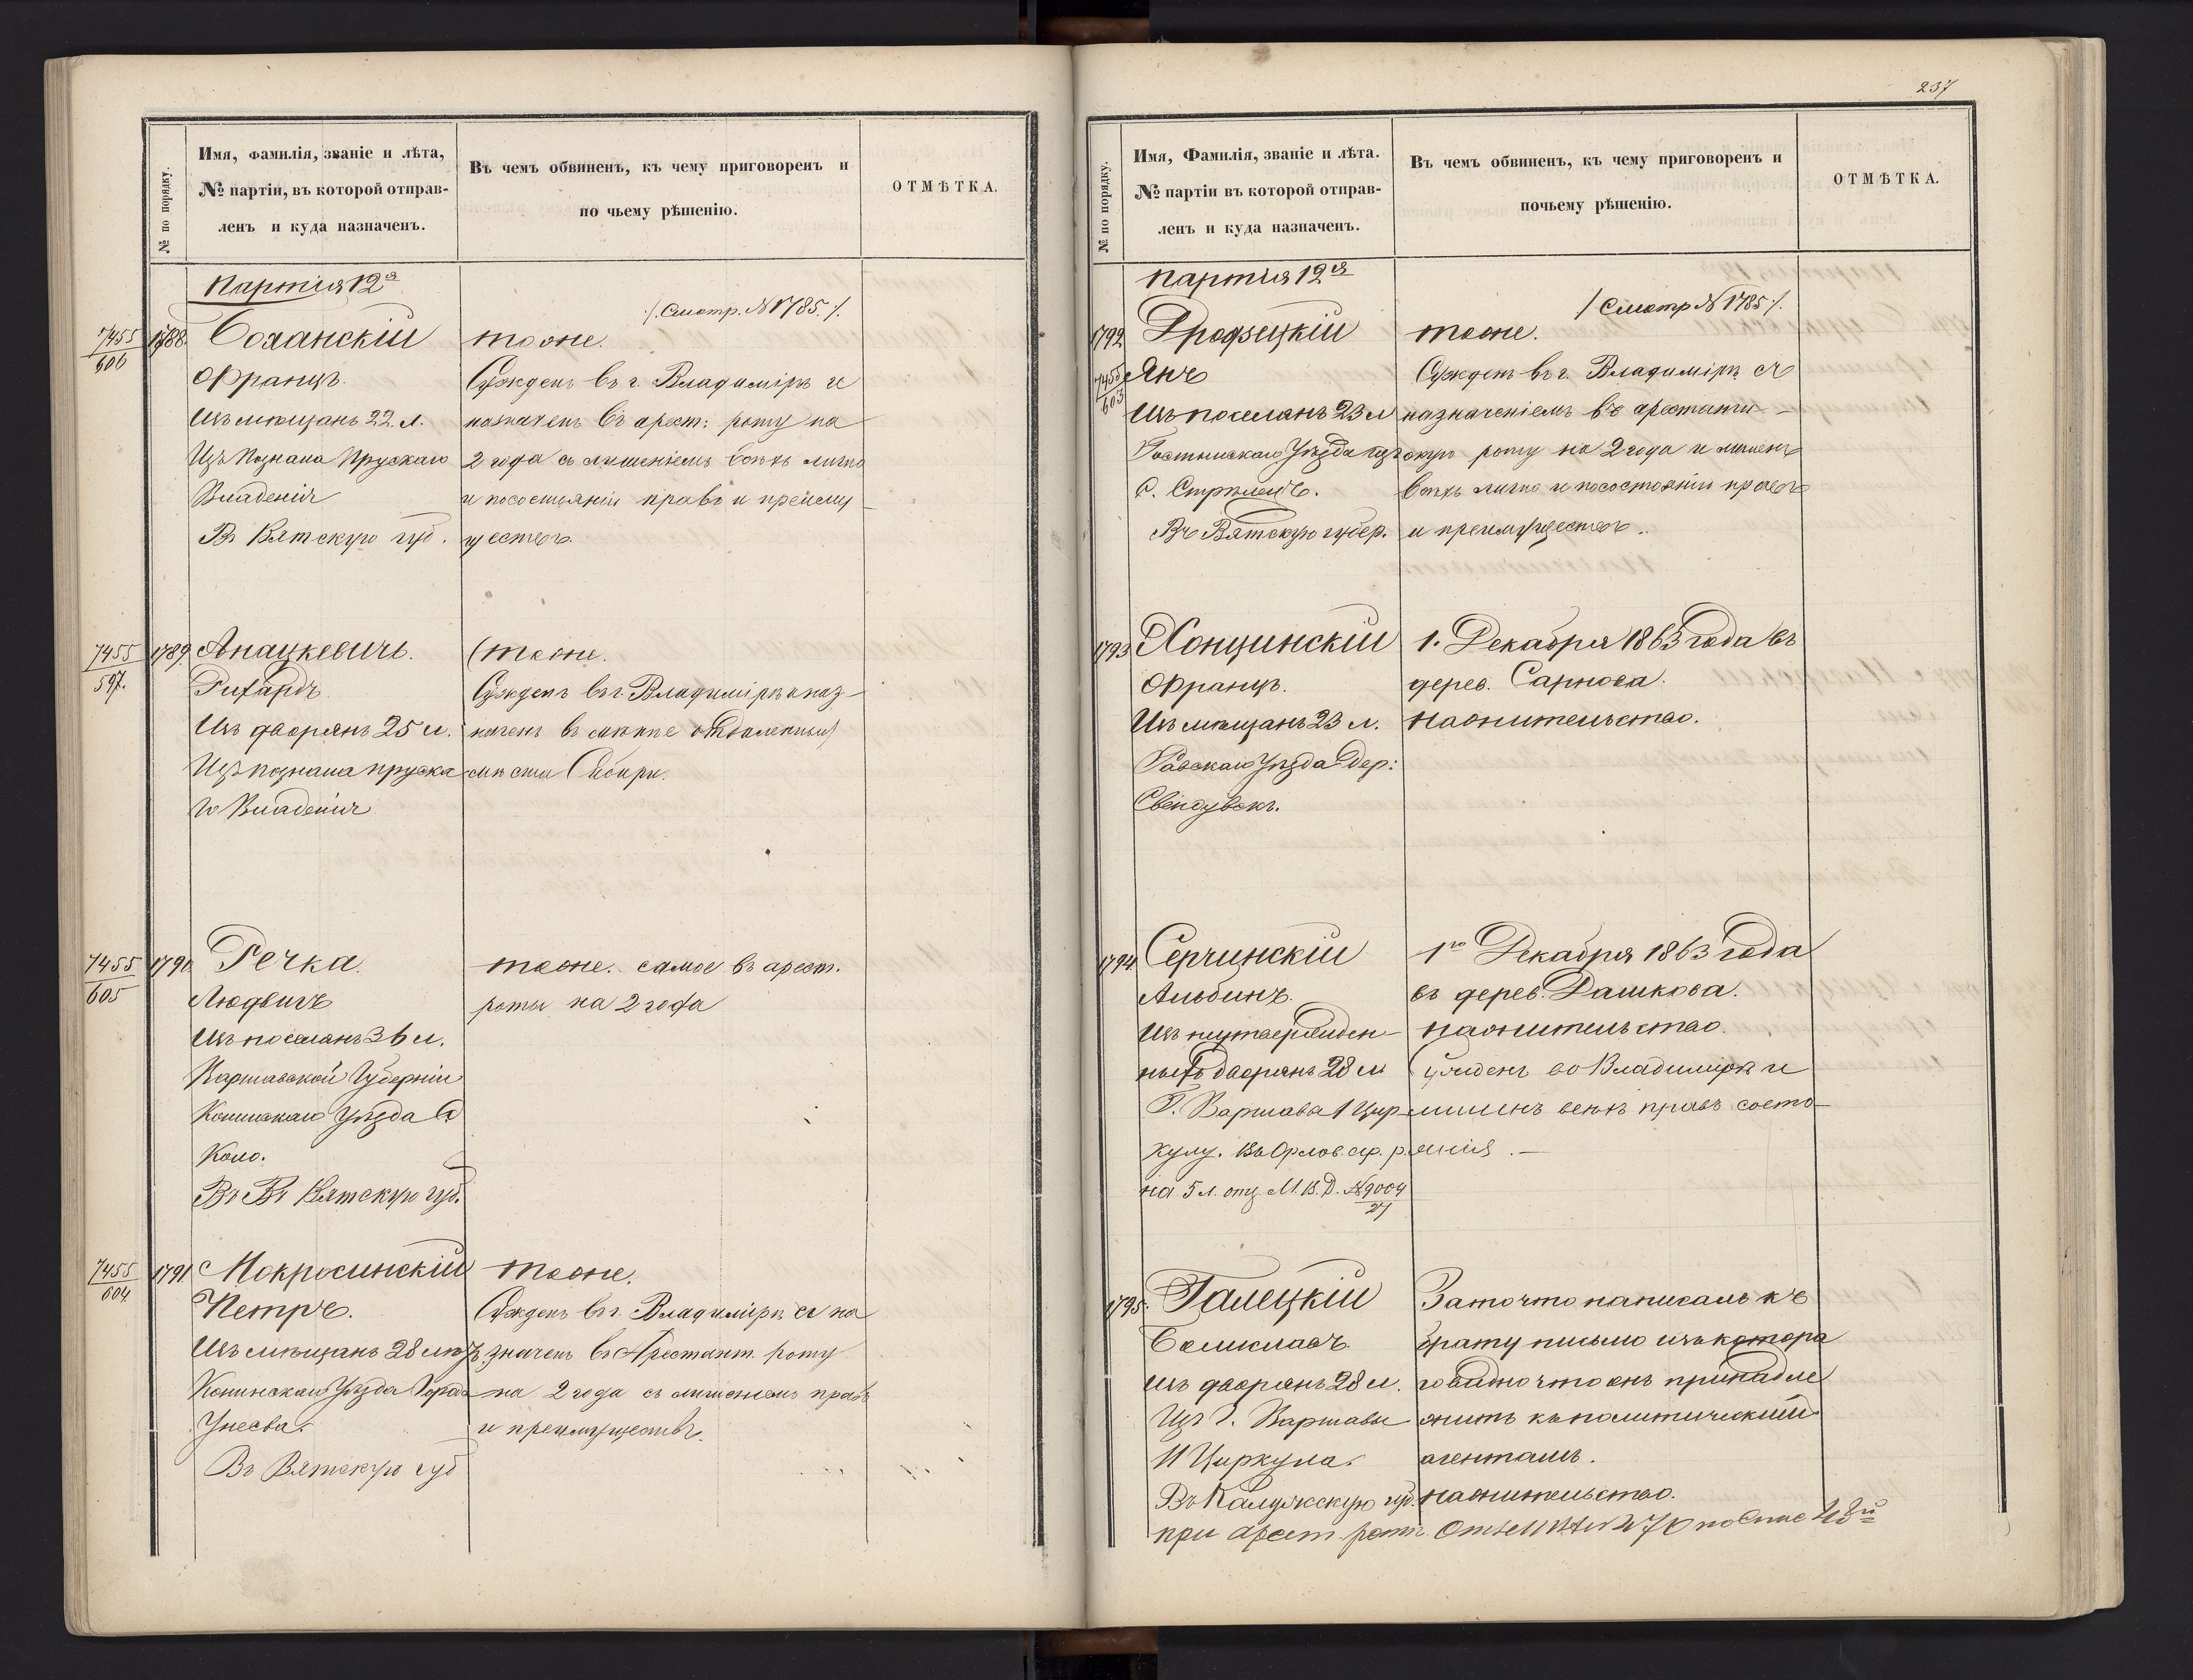 № по порядку.
Имя, фамилія, званіе и лѣта,
№ партіи, въ которой отправ-
ленъ и куда назначенъ.
Въ чемъ обвиненъ, къ чему приговоренъ и
по чьему рѣшенію.
ОТМѢТКА.
Партія 12я
/. Смотр. № 1785. /.
7455
606
1788.
тоже.
Францъ.
Сужденъ въ г. Владимірѣ и
Изъ мѣщанъ 22. л.
назначенъ въ арест: роту на
Изъ Познана Прускаго
2 года съ лишеніемъ всѣхъ лично
Владенія
и по состоянію правъ и преиму
Въ Вятскую губ.
ществъ.
7455
597.
1789
Анацкевичъ.
тоже.
Рихардъ
Сужденъ въ г. Владимірѣ и наз-
Изъ дворянъ 25 л.
наченъ въ менѣе отдаленныя
Изъ Познана пруска
мѣста Сибири.
го Владенія
7455
605
1790
Речка.
тоже. самое въ арест.
Людвигъ
роты на 2 года
Изъ поселянъ 36 л.
Варшавской Губерніи
Уѣзда
Коло.
Въ Вятскую губ.
7455
604
1791
Мокросинскій
тоже.
Петръ.
Сужденъ въ г. Владимірѣ и на
Изъ мѣщанъ 28 л. изъ
значенъ въ Арестант. роту
Конинскаго Уѣзда Города
на 2 года съ лишеніемъ правъ
и преимуществъ.
Въ Вятскую губ
237
№ по порядку.
Имя, Фамилія, званіе и лѣта.
№ партіи въ которой отправ-
ленъ и куда назначенъ.
Въ чемъ обвиненъ, къ чему приговоренъ и
почьему рѣшенію.
ОТМѢТКА.
Партія 12я
/ Смотр № 1785 /.
1792
тоже.
7455
603
Янъ
Сужденъ въ г. Владимірѣ съ
Изъ поселянъ 23 л
назначеніемъ въ арестант-
Гостынскаго Уѣзда изъ
скую роту на 2 года и лишенъ
всѣхъ лично и по состоянію правъ
Въ Вятскую губер.
и преимуществъ.
1793
Хонцинскій
1. Декабря 1863 года въ
Францъ.
дерев. Сарнова.
Изъ мѣщанъ 23 л.
На жительство.
Равскаго Уѣзда дер:
1794
Серчинскій
1го Декабря 1863 года
Альбинъ.
въ дерев. Дашкова.
Изъ неутвержден-
На жительство.
ныхъ дворянъ 28 л
Сужденъ во Владимірѣ и
Г. Варшава 1 Цир-
лишенъ всѣхъ правъ состо-
кулу. Въ Орлов. ар. р.
янія. —
на 5 л. отн. М. В. Д. № 9004
27
1795.
Галецкій
За то что написалъ къ
Болиславъ.
брату письмо изъ котора
Изъ дворянъ 28 л.
го видно что онъ принадле
Изъ Г. Варшавы
житъ къ политическимъ
11 Циркула.
агентамъ.
Въ Калужскую губ.
На жительство.
при арест. рот.